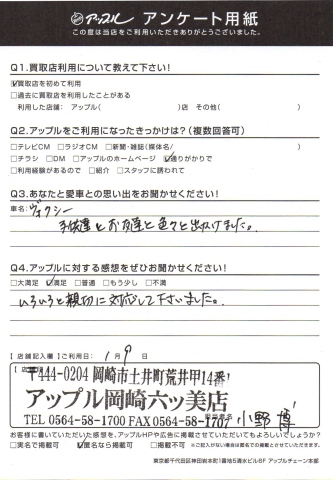 アップル アンケート用紙
この度は当店をご利用いただきありがとうございました。
Q1.買取店利用について教えて下さい!
☑買取店を初めて利用
□過去に買取店を利用したことがある
利用した店舗: アップル( )店 その他( )
Q2.アップルをご利用になったきっかけは?(複数回答可)
□テレビCM □ラジオCM □新聞・雑誌(媒体名/ )
□チラシ □DM □アップルのホームページ ☑通りがかりで
□利用経験があるので □紹介 □スタッフに誘われて
Q3.あなたと愛車との思い出をお聞かせください!
車名: ヴォクシー
子供達とお友達と色々と出かけました。
Q4.アップルに対する感想をぜひお聞かせください!
□大満足 ☑満足 □普通 □もう少し □不満
いろいろと親切に対応して下さいました。
【店舗記入欄】ご利用日: 1月9日
〒444-0204 岡崎市土井町荒井甲14番1
アップル岡崎六ッ美店
TEL 0564-58-1700 FAX 0564-58-1707
小野 博
お客様に書いていただいた感想を、アップルHPや広告に掲載させていただいてもよろしいでしょうか?
□実名で掲載可 ☑匿名なら掲載可 □掲載不可 ※ご記入がない場合は匿名での掲載とさせていただきます。
東京都千代田区神田岩本町1番地5清水ビル6F アップルチェーン本部